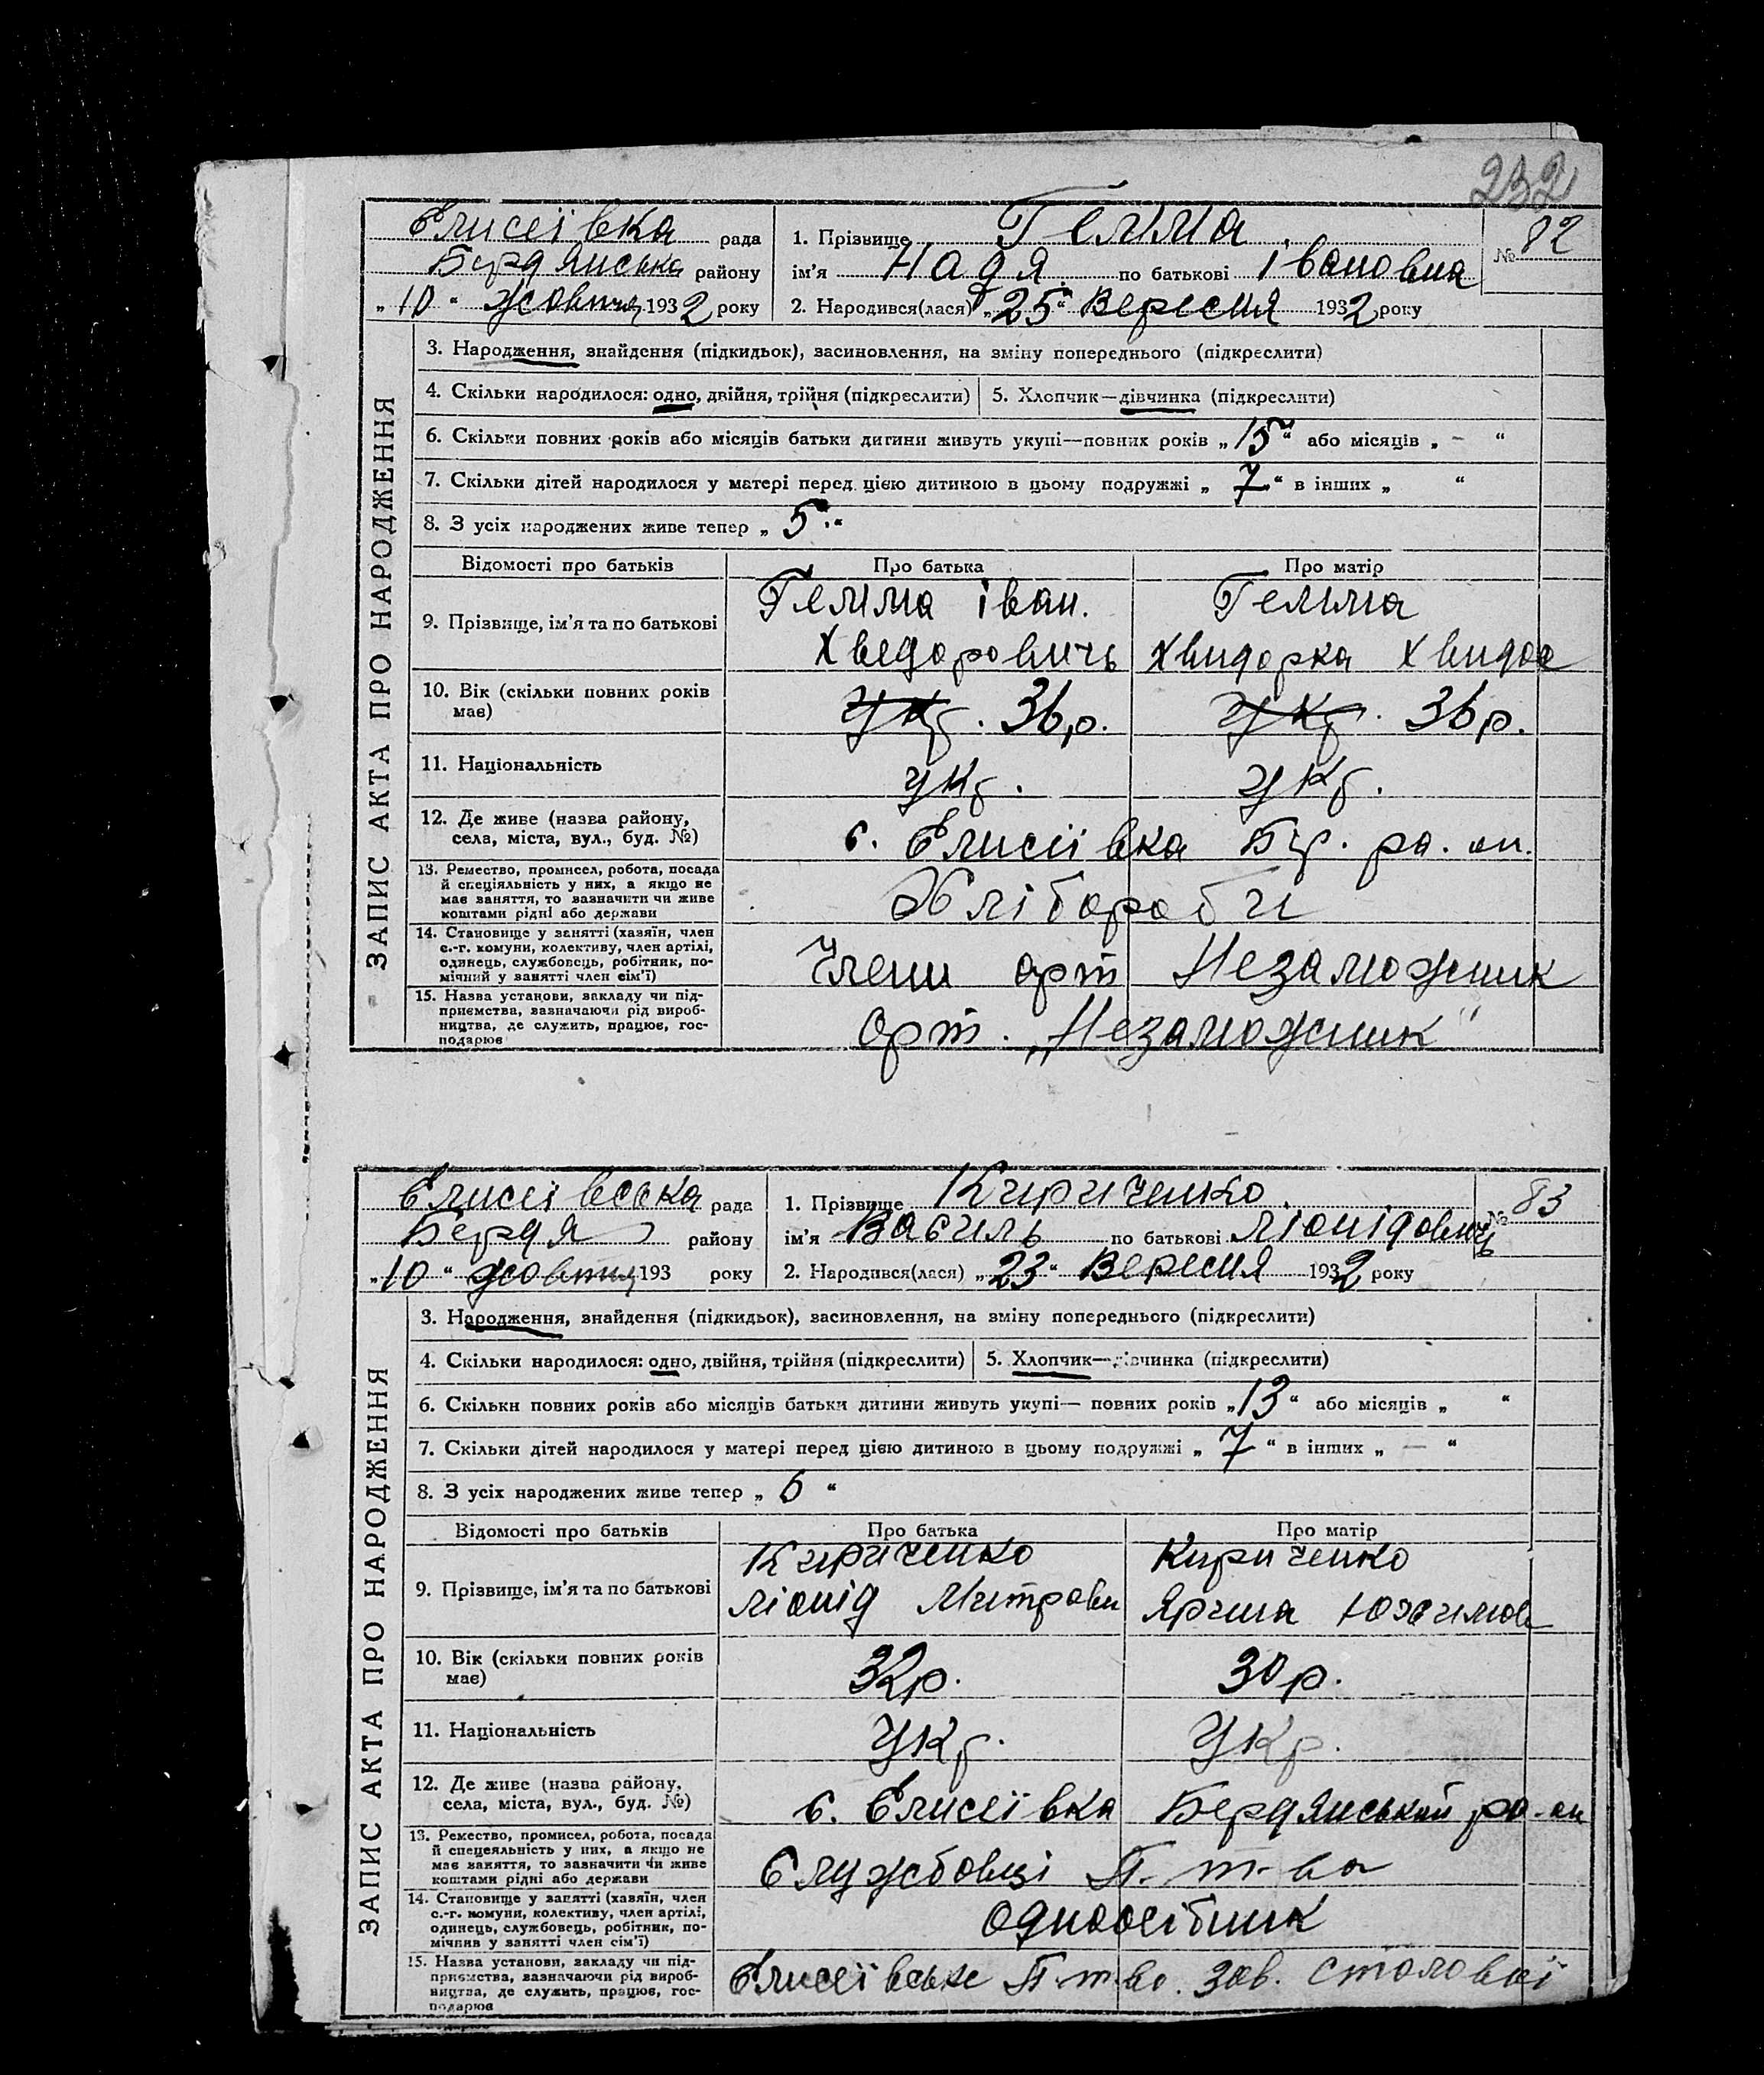 232
Єлисеївка рада
Бердянська району
„10“ жовтня 1932 року
1. Прізвище Гемма
ім'я Надя по батькові Івановна
№ 82
2. Народився(лася) „25“ Вересня 1932 року
ЗАПИС АКТА ПРО НАРОДЖЕННЯ
3. Народження, знайдення (підкидьок), засиновлення, на зміну попереднього (підкреслити)
4. Скільки народилося: одно, двійня, трійня (підкреслити) 5. Хлопчик—дівчинка (підкреслити)
6. Скільки повних років або місяців батьки дитини живуть укупі—повних років „15“ або місяців „ – “
7. Скільки дітей народилося у матері перед цією дитиною в цьому подружжі „7“ в інших „ “
8. З усіх народжених живе тепер „5“
Відомості про батьків Про батька Про матір
9. Прізвище, ім'я та по батькові
Гемма Іван. Гемма
Хведоровичь Хвидорка Хвидо
10. Вік (скільки повних років
має)
Укр. 36 р. Укр. 36 р.
11. Національність
укр. укр.
12. Де живе (назва району,
села, міста, вул., буд. №)
с. Єлисіївка Бер. ра. он.
13. Ремество, промисел, робота, посада
й спеціяльність у них, а якщо не
має заняття, то зазначити чи живе
коштами рідні або держави
Хлібороби
14. Становище у занятті (хазяїн, член
с.-г. комуни, колективу, член артілі,
одинець, службовець, робітник, по-
мічний у занятті член сім'ї)
Члени арт Незаможник
15. Назва установи, закладу чи під-
приємства, вазначаючи рід вироб-
ництва, де служить, працює, гос-
подарює
Арт. „Незаможник"
Єлисеївська рада
Бердя району
„10“ жовтня 193 року
1. Прізвище Кириченко
ім'я Василь по батькові Ліонідович
№ 83
2. Народився(лася) „23“ Вересня 1932 року
ЗАПИС АКТА ПРО НАРОДЖЕННЯ
3. Народження, знайдення (підкидьок), засиновлення, на зміну попереднього (підкреслити)
4. Скільки народилося: одно, двійня, трійня (підкреслити) 5. Хлопчик—дівчинка (підкреслити)
6. Скільки повних років або місяців батьки дитини живуть укупі— повних років „13“ або місяців „ “
7. Скільки дітей народилося у матері перед цією дитиною в цьому подружжі „7“ в інших „ — “
8. З усіх народжених живе тепер „6“
Відомості про батьків Про батька Про матір
9. Прізвище, ім'я та по батькові
Кириченко Кириченко
Ліонід Митрови Ярина
10. Вік (скільки повних років
має)
32 р. 30 р.
11. Національність
Укр. Укр.
12. Де живе (назва району,
села, міста, вул., буд. №)
с. Єлисеївка Бердянський ра-он
13. Ремество, промисел, робота, посада
й спецеяльність у них, а якщо не
має заняття, то зазначити чи живе
коштами рідні або держави
Службовці П. т-ва
14. Становище у занятті (хазяїн, член
с.-г. комуни, колективу, член артілі,
одинець, службовець, робітник, по-
мічник у занятті член сім'ї)
Одноосібник
15. Назва установи, закладу чи під-
приємства, вазначаючи рід вироб-
ництва, де служить, працює, гос-
подарює
Єлисеївське П. т-во. зав. столової